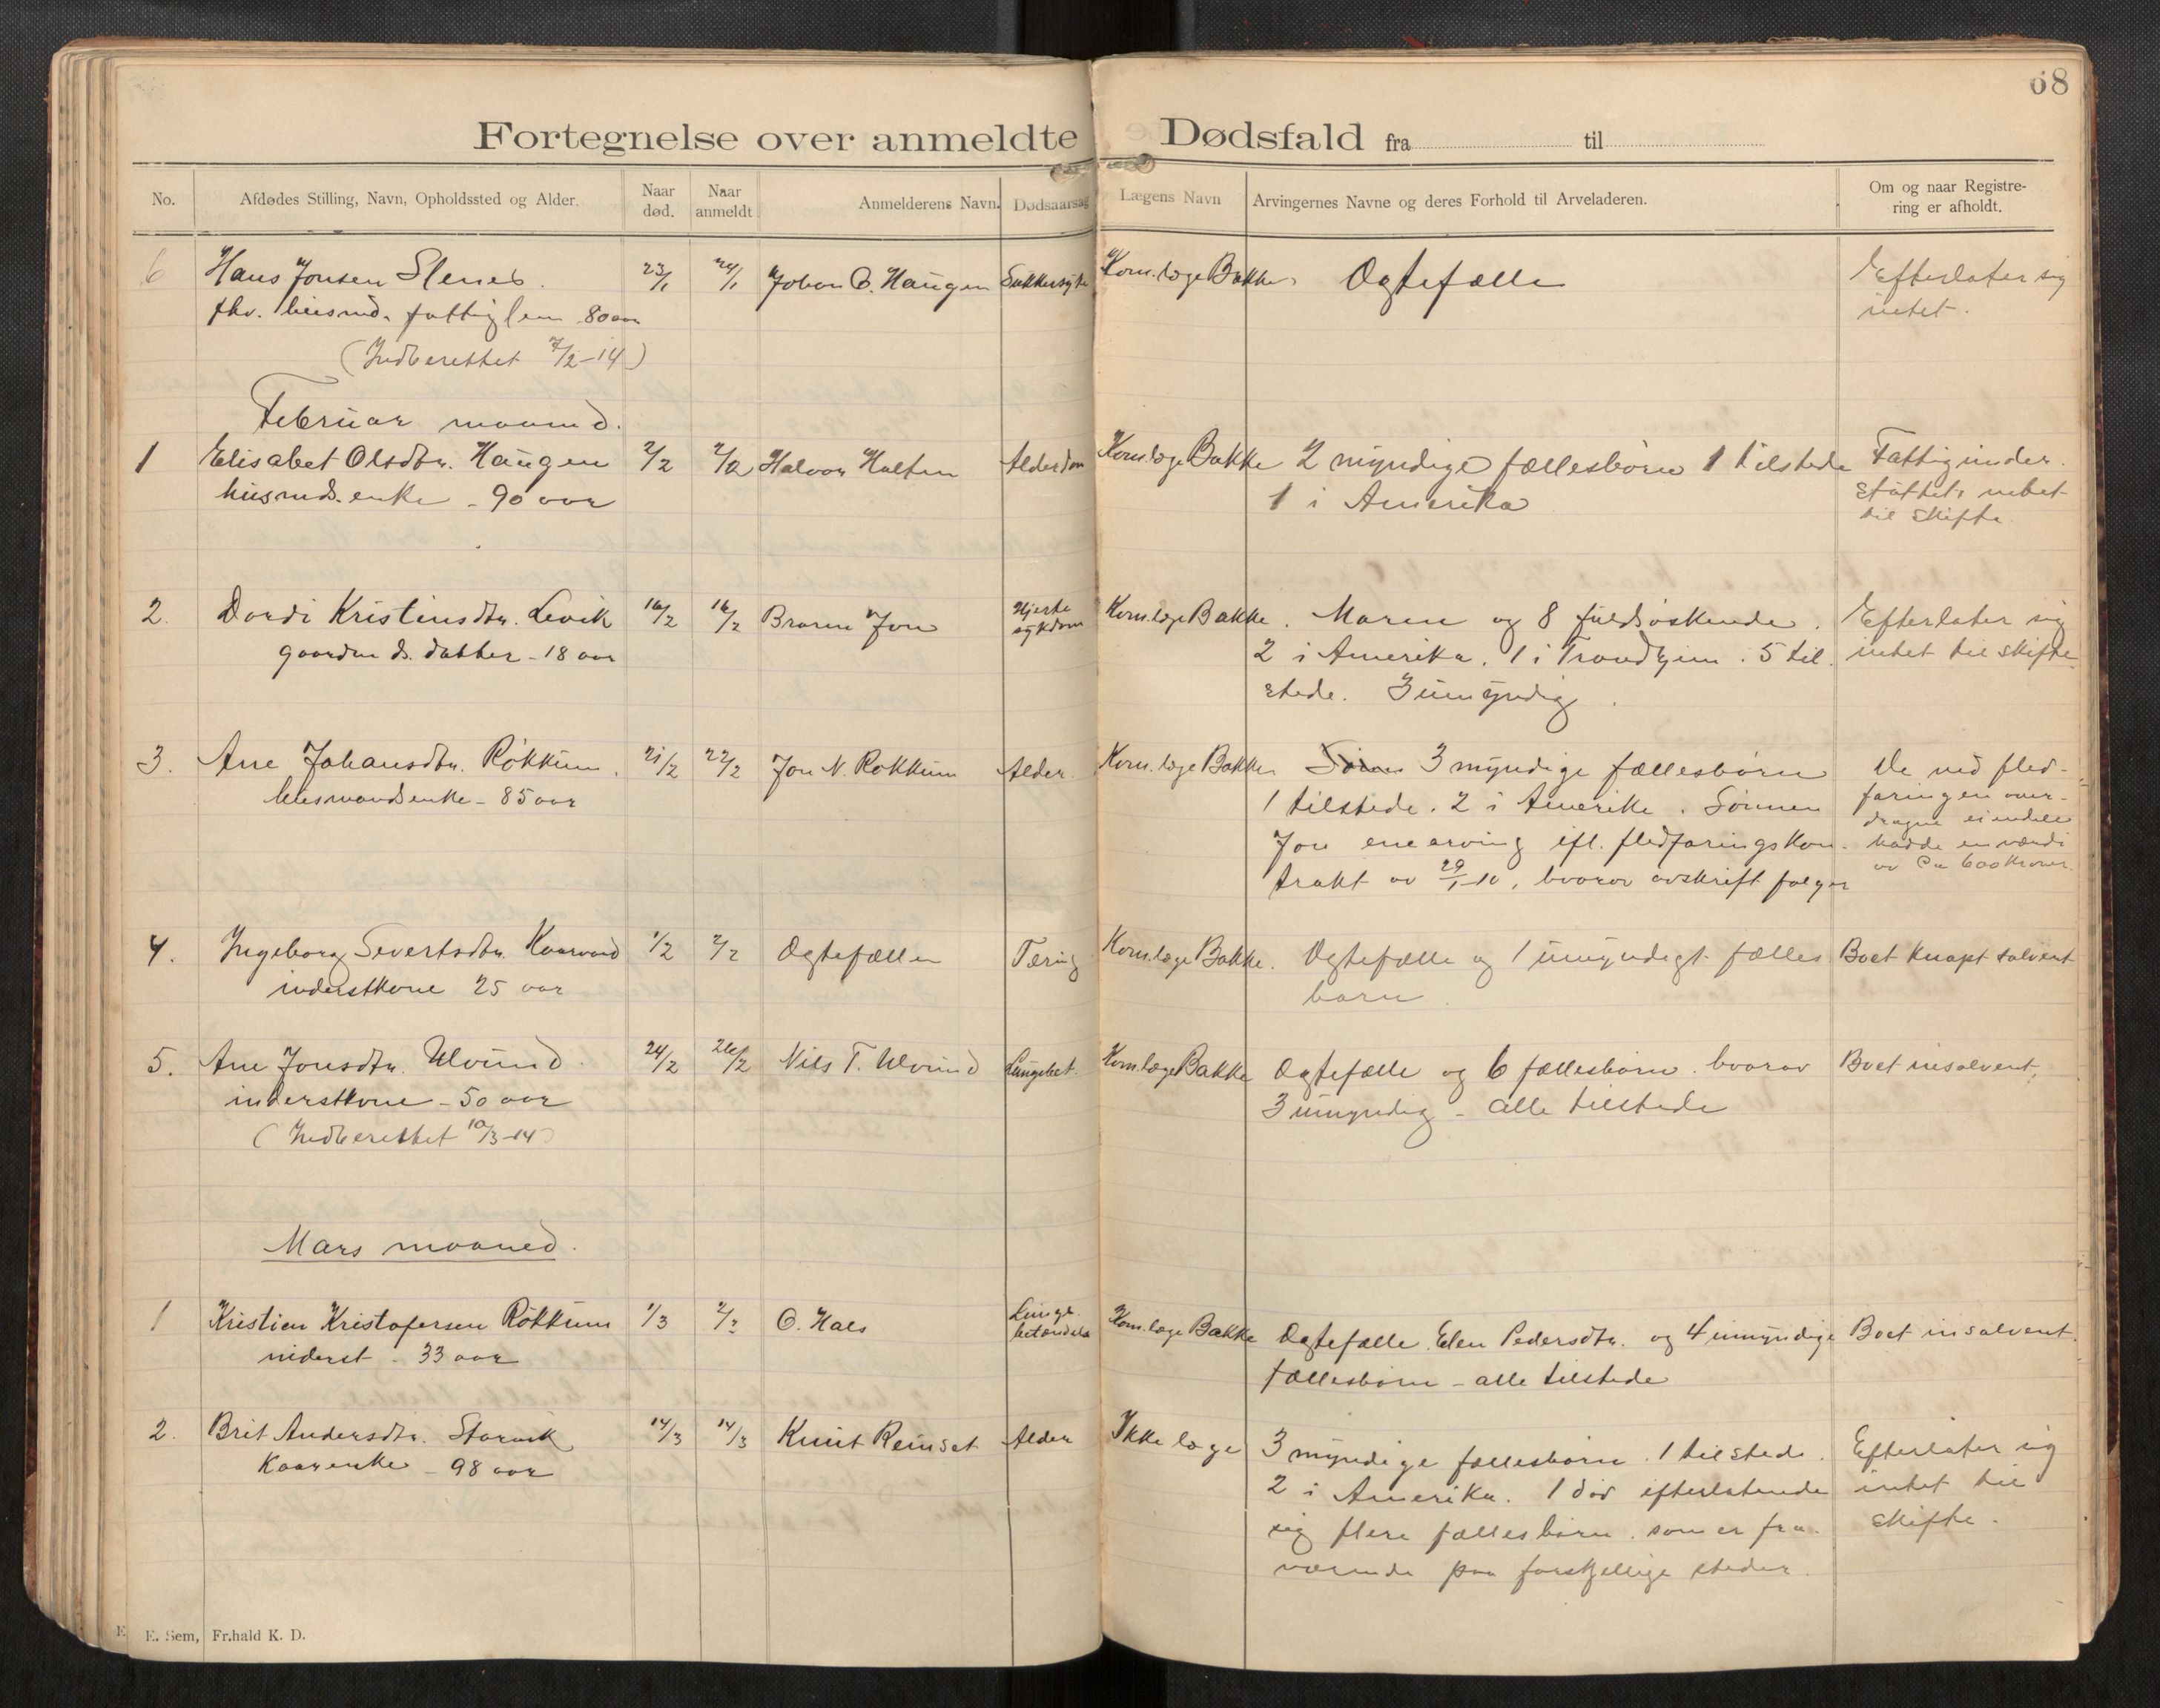 68
Fortegnelse over anmeldte Dødsfald fra til
No.
Afdødes Stilling, Navn, Opholdssted og Alder.
Naar død.
Naar anmeldt
Anmelderens Navn.
Dødsaarsag
Lægens Navn
Arvingernes Navne og deres Forhold til Arveladeren.
Om og naar Registre-
ring er afholdt.
6 Hans Jonsen Slenes. 23/1 24/1 Johan O. Haugen Sukkersyke Kom.læge Bakke. Ægtefælle Efterlater sig
fhv. husmd. fattiglem 80 aar intet.
(Indberettet 7/2-14)
Februar maaned.
1 Elisabet Olsdtr. Haugen 2/2 2/2 Halvor Halten Alderdom Kom.læge Bakke 2 myndige fællesbörn 1 tilstede Fattigunder
husmds. enke - 90 aar 1 i Amerika støttet, intet
til skifte
2. Dordi Kristensdtr. Levik 16/2 16/2 Broren Jon Hjerte
sykdom Kom.læge Bakke. Moren og 8 fuldsöskende. Efterlater sig
gaardmds. datter - 18 aar 2 i Amerika. 1 i Trondhjem. 5 til intet til skifte
stede. 3 umyndig.
3. Ane Johansdtr. Rökkum. 21/2 22/2 Jon N. Rökkum Alder Kom.læge Bakke Sönn 3 myndige fællesbörn De ved fled-
husmandsenke - 85 aar 1 tilstede. 2 i Amerika. Sönnen föringen over-
dragne eiendele
Jon enearving ifl. fledföringskon- hadde en værdi
trakt av 29/1-10, hvorav avskrift følger av Ca 600 kroner.
4. Ingeborg Sivertsdtr. Kaarvand 1/2 2/2 Ægtefællen Tæring Kom.læge Bakke. Ægtefælle og 1 umyndigt fælles Boet knapt solvent
inderstkone 25 aar barn.
5. Ane Jonsdtr. Ulvund 24/2 26/2 Nils T. Ulvund Lungebet. Kom.læge Bakke Ægtefælle og 6 fællesbörn. hvorav Boet insolvent.
inderstkone - 50 aar 3 umyndig - alle tilstede
(Indberettet 10/3-14)
Mars maaned.
1 Kristian Kristofersen Rökkum 1/3 2/3 O. Hals Lunge-
betændelse Kom.læge Bakke Ægtefælle Elen Pedersdtr. og 4 umyndige Boet insolvent.
inderst - 33 aar fællesbörn - alle tilstede
2. Brit Andersdtr. Storvik 14/3 14/3 Knut Reinset Alder Ikke læge 3 myndige fællesbörn. 1 tilstede. Efterlater sig
Kaarenke - 98 aar 2 i Amerika. 1 död efterlatende intet til
sig flere fællesbörn. som er fra- skifte.
værende paa forskjellige steder.
E. Sem, Fr.hald K. D.